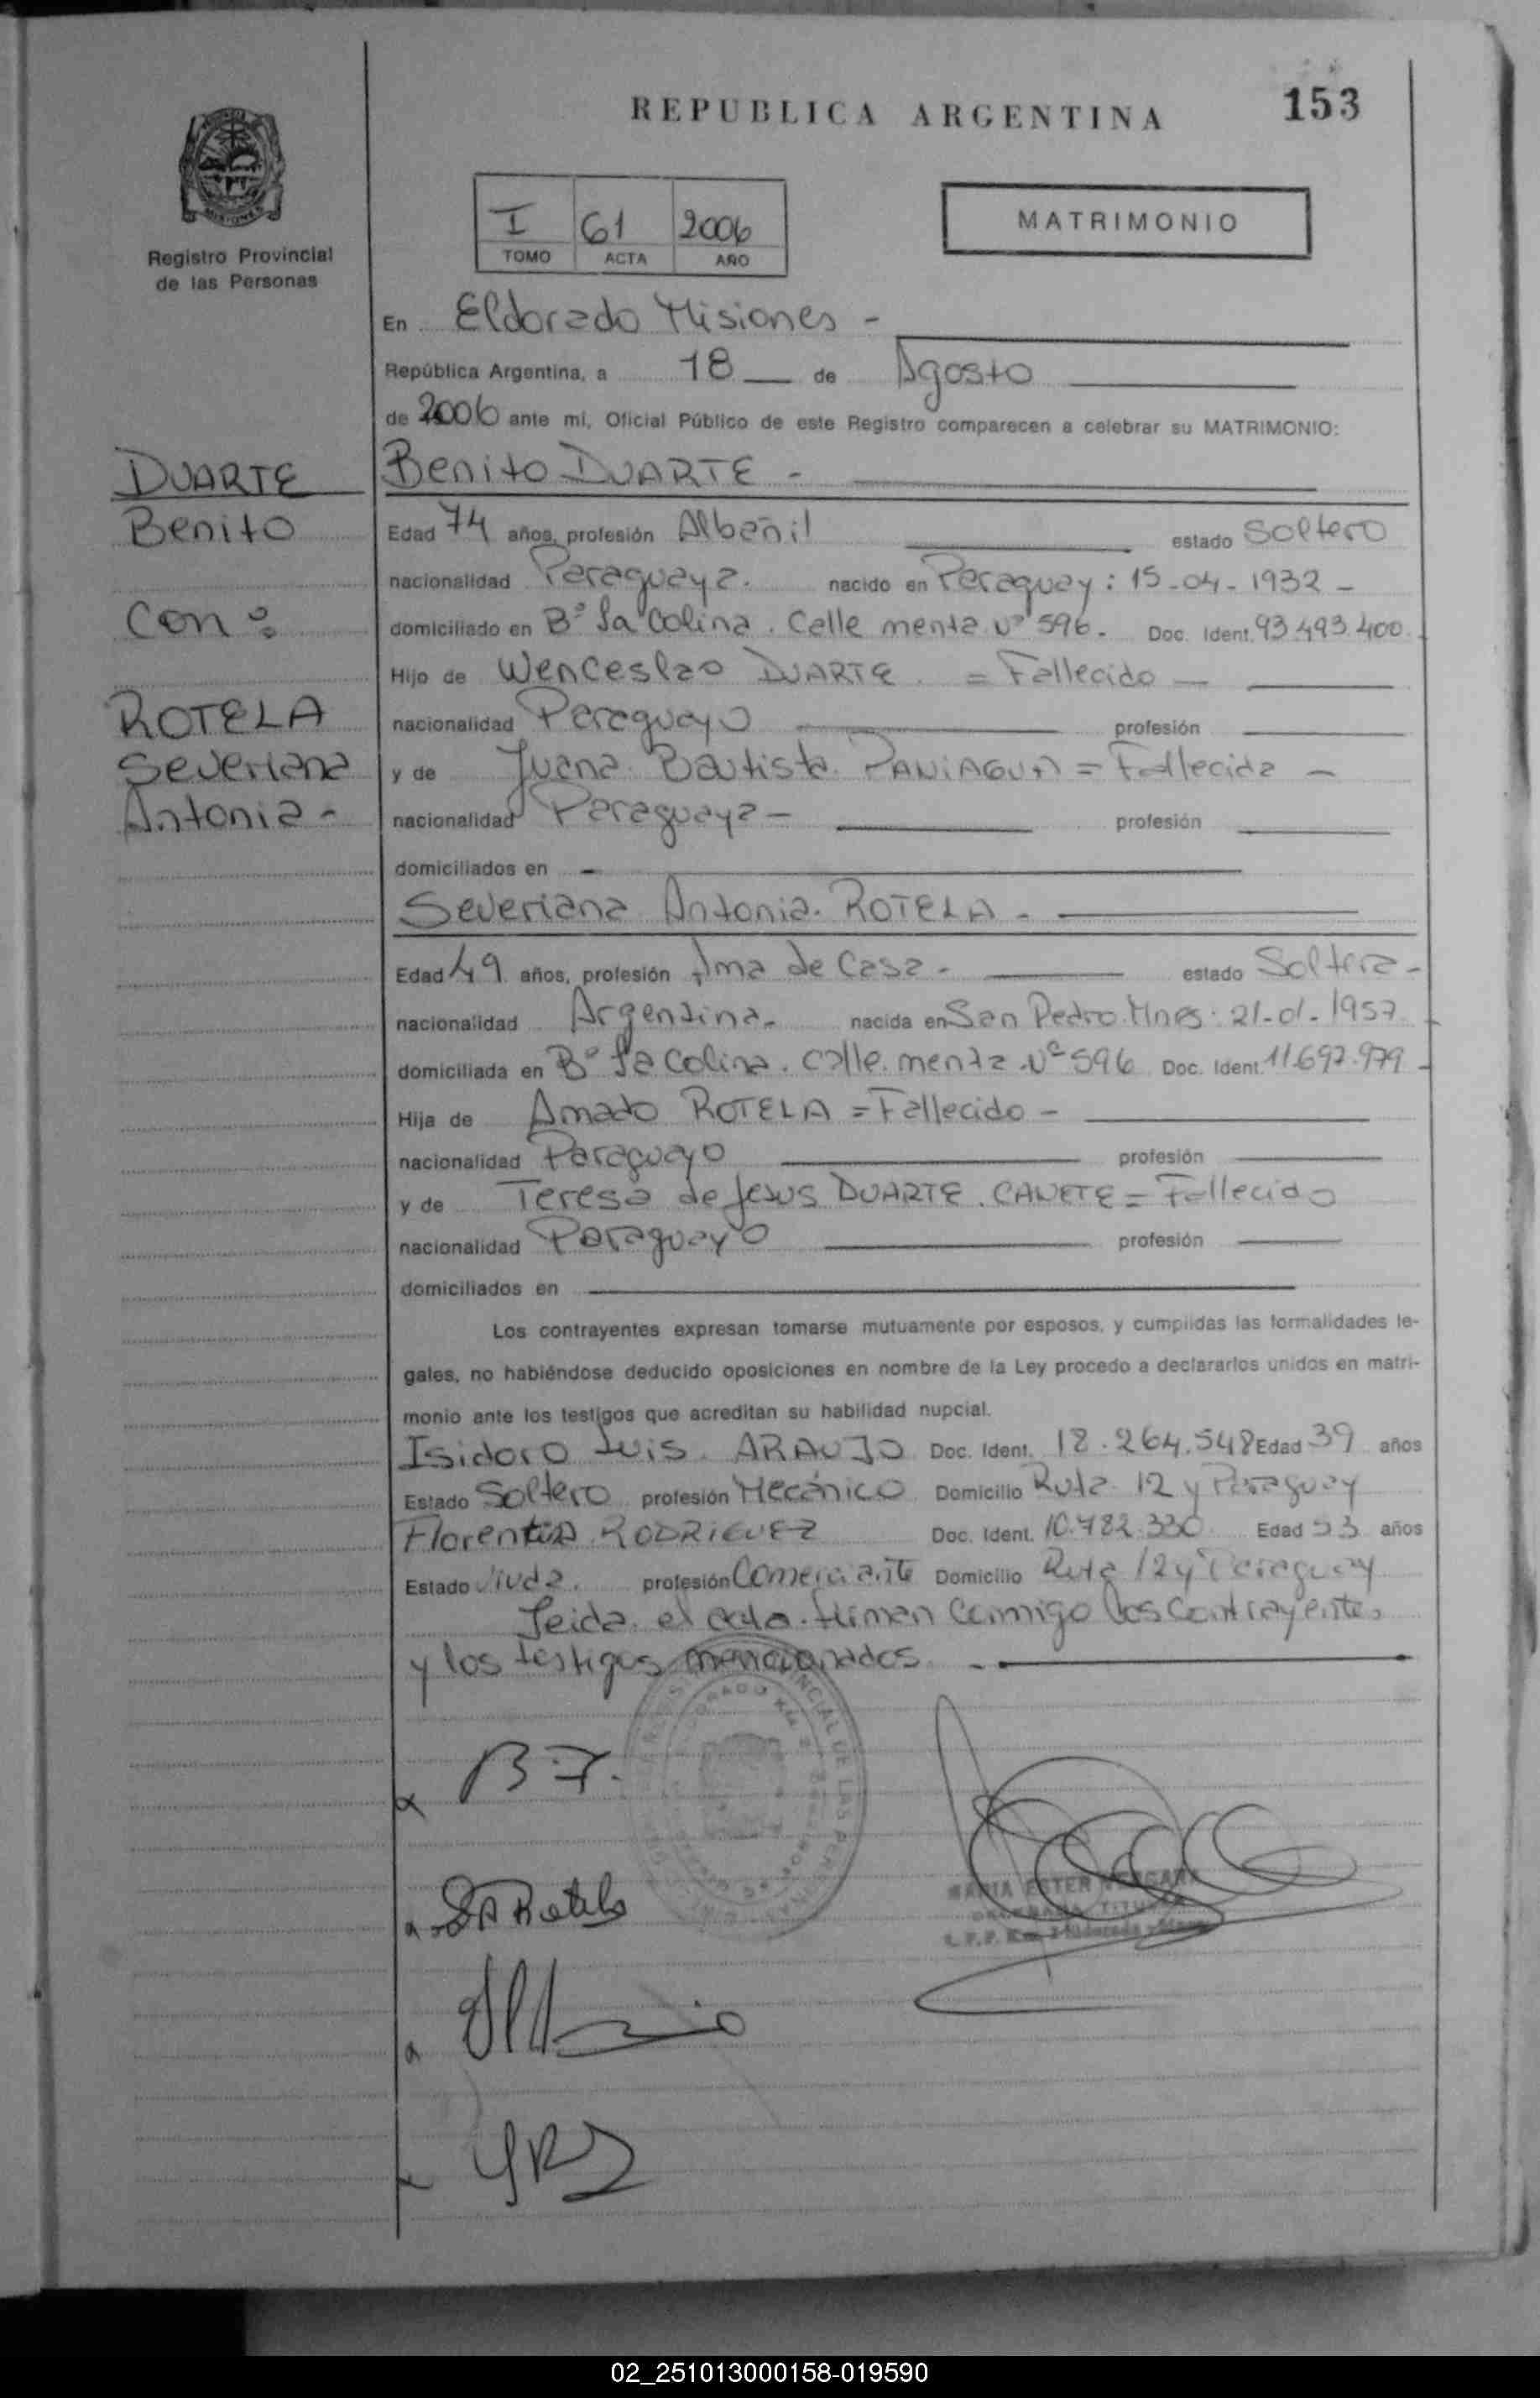 REPUBLICA ARGENTINA
153
MISIONES
Registro Provincial
de las Personas
I 61 2006
TOMO ACTA AÑO
MATRIMONIO
En Eldorado Misiones -
República Argentina, a 18 de Agosto
de 2006 ante mi, Oficial Público de este Registro comparecen a celebrar su MATRIMONIO:
DUARTE
Benito
Con:
ROTELA
Severiana
Antonia -
Benito DUARTE -
Edad 74 años, profesión Albañil estado Soltero
nacionalidad Paraguaya. nacido en Paraguay: 15-04-1932 -
domiciliado en Bº La Colina. Calle menta Nº 596. Doc. Ident. 93.493.400
Hijo de Wenceslao DUARTE. = Fallecido -
nacionalidad Paraguayo profesión
y de Juana Bautista PANIAGUA = Fallecida -
nacionalidad Paraguaya - profesión
domiciliados en -
Severiana Antonia. ROTELA -
Edad 49 años, profesión Ama de Casa - estado Soltera -
nacionalidad Argentina. nacida en San Pedro. Mnes: 21-01-1957
domiciliada en Bº La Colina. calle. menta. Nº 596 Doc. Ident. 11.697.979 -
Hija de Amado ROTELA = Fallecido -
nacionalidad Paraguayo profesión
y de Teresa de Jesus DUARTE. CANETE = Fallecido
nacionalidad Paraguayo profesión
domiciliados en
Los contrayentes expresan tomarse mutuamente por esposos, y cumplidas las formalidades le-
gales, no habiéndose deducido oposiciones en nombre de la Ley procedo a declararlos unidos en matri-
monio ante los testigos que acreditan su habilidad nupcial.
Isidoro Luis. ARAUJO Doc. Ident. 18.264.548 Edad 39 años
Estado Soltero profesión Mecánico Domicilio Ruta 12 y Paraguay
RODRIGUEZ Doc. Ident. 10.482.330 Edad 53 años
Estado Viuda. profesión Comerciante Domicilio Ruta 12 y Paraguay
Leida el acta. firman conmigo los Contrayentes
y los testigos mencionados. -
B.F.
SARotela
MARIA ESTER VERGARA
TITULAR
02_251013000158-019590